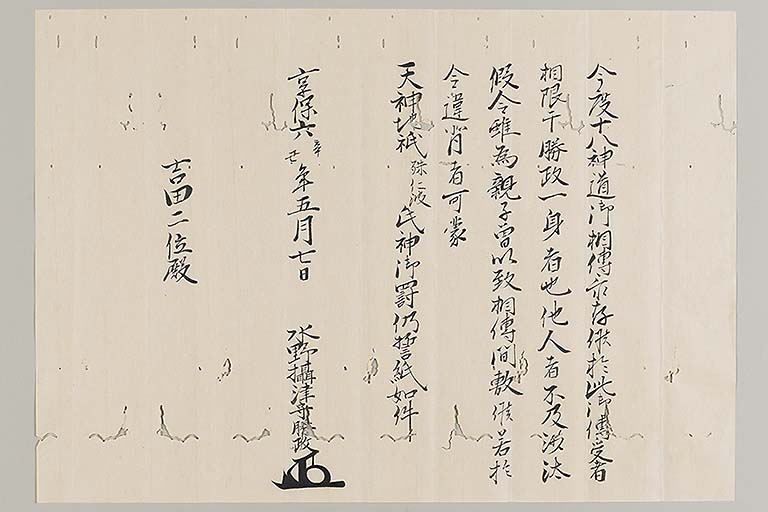 今度十八神道御相傳忝存候於此御傳受者
相限于勝政一身者也他人者不及沙汰
假令雖為親子曾以致相傳間敷候若於
令違背者可蒙
天神地祇殊仁波氏神御罸仍誓紙如件
享保六辛丑年五月七日
水野攝津守勝政
吉田二位殿